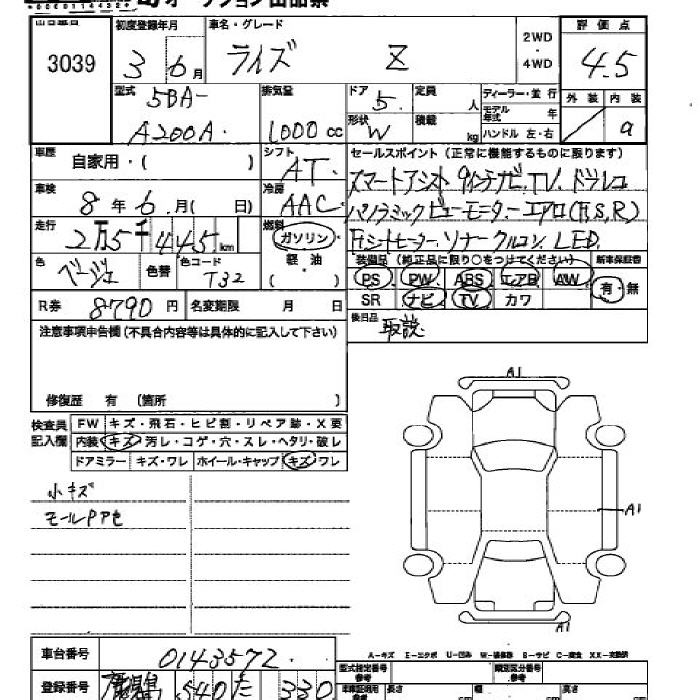 オークション出品票
3039
初度登録年月
3 6月
車名・グレード
ライズ Z
2WD
・
4WD
評価点
4.5
型式
5BA-
A200A.
排気量
1000 cc
ドア
5
定員
人
形状
W
積載
kg
ディーラー・並行
モデル年式 年
ハンドル 左・右
外装 内装
a
車歴
自家用・( )
シフト
AT.
セールスポイント(正常に機能するものに限ります)
スマートアシスト 9インチナビ.TV.ドラレコ
パノラミックビューモニター エアロ(F,S,R)
Fシートヒーター.ソナー クルコン.LED.
車検
8年 6月( 日)
冷房
AAC
走行
2万5千445km
燃料
ガソリン
軽・油
( )
色
ベージュ
色替
色コード
T32
装備品(純正品に限り○をつけてください) 新車保証書
PS PW ABS エアB AW
有・無
SR ナビ TV カワ
R券 8790円
名変期限 月 日
後日品
取説
注意事項申告欄(不具合内容等は具体的に記入して下さい)
修復歴 有 (箇所 )
検査員記入欄
FW キズ・飛石・ヒビ割・リペア跡・X要
内装 キズ・汚レ・コゲ・穴・スレ・ヘタリ・破レ
ドアミラー キズ・ワレ ホイール・キャップ キズ・ワレ
小キズ
モールPアセ
A1
A1
A1
A-キズ E-エクボ U-凹み W-補修跡 S-サビ C-腐食 XX-交換済
車台番号
0143572
登録番号
540 た 330
型式指定番号 参考
類別区分番号 参考
長さ cm
幅 cm
高さ cm